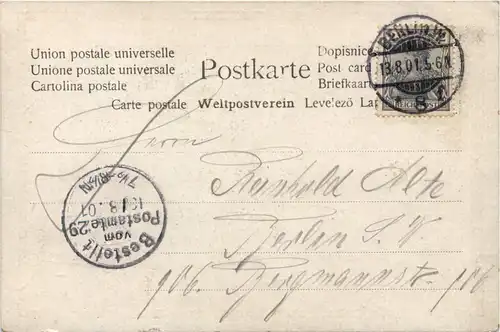 Union postale universelle
Unione postale universale
Cartolina postale
Postkarte
Dopisnice
Post card
Briefkaart
Carte postale Weltpostverein Levelező Lap
BERLIN W.
13.8.01.5-6N.
* 8
Herrn
Reinhold Alte
Berlin S. W.
106. Bergmannstr. 106
Bestellt
vom
Postamte 29
13/8.01
7½-8½N